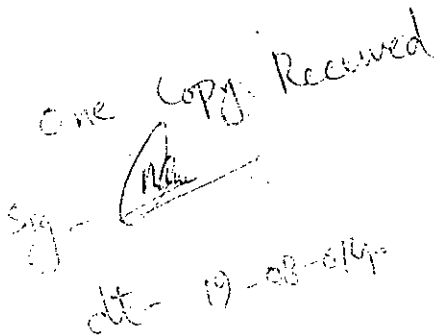 one Copy Received
Sig -
dt - 19-08-014